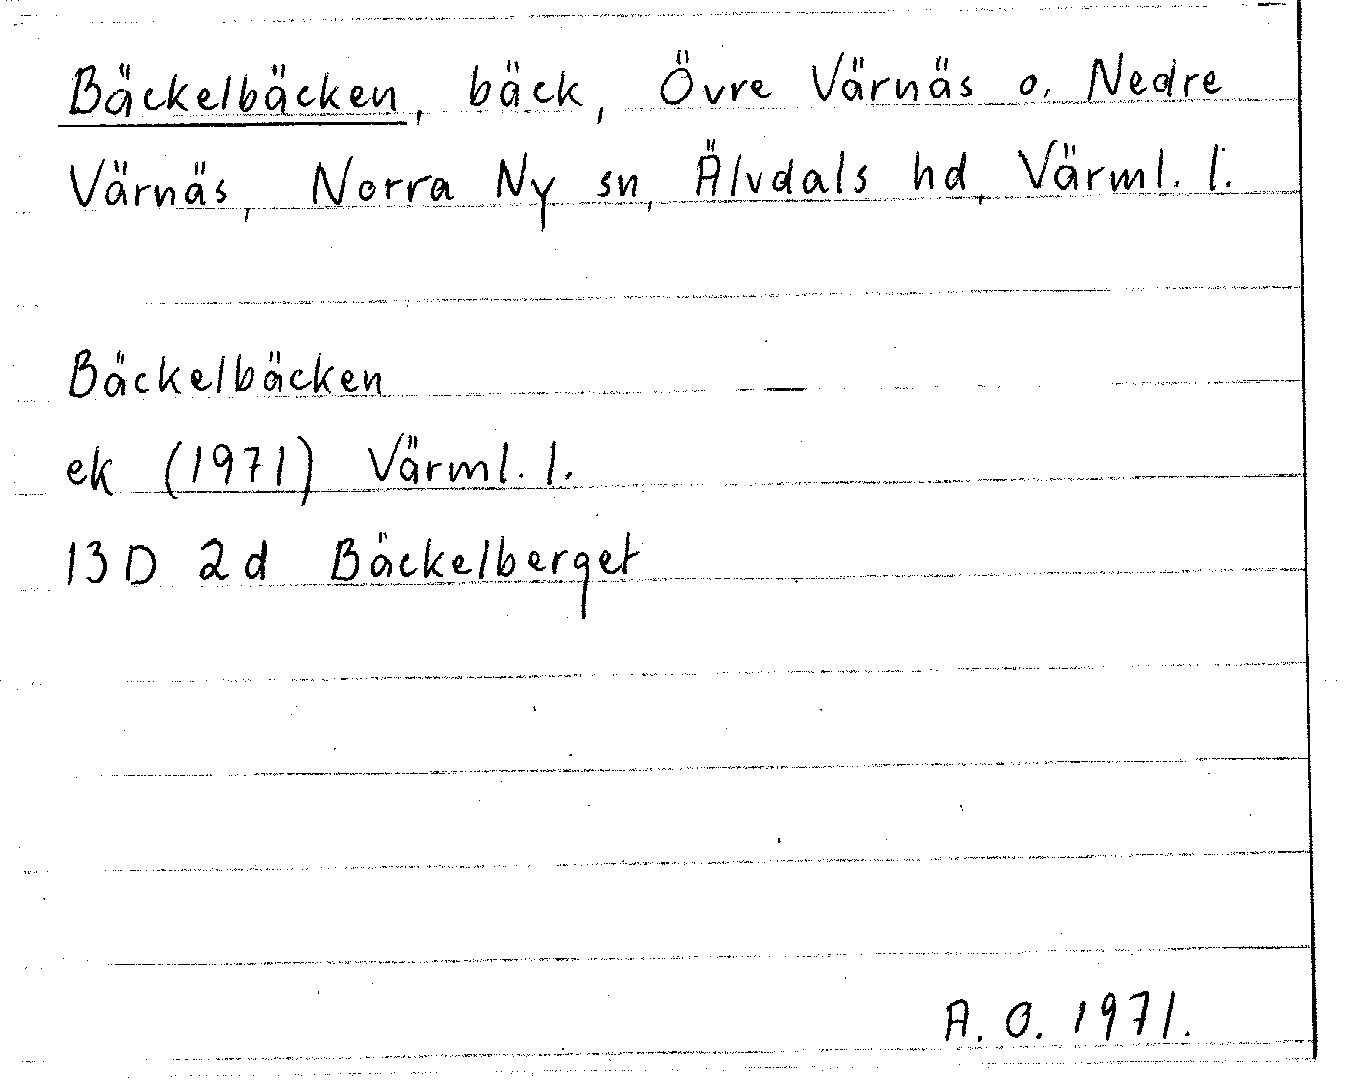 Bäckelbäcken, bäck, Övre Värnäs o. Nedre
Värnäs, Norra Ny sn, Älvdals hd, Värml. l.
Bäckelbäcken
ek (1971) Värml. l.
13D 2d Bäckelberget
A. O. 1971.